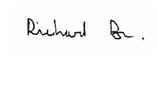 Richard Br.